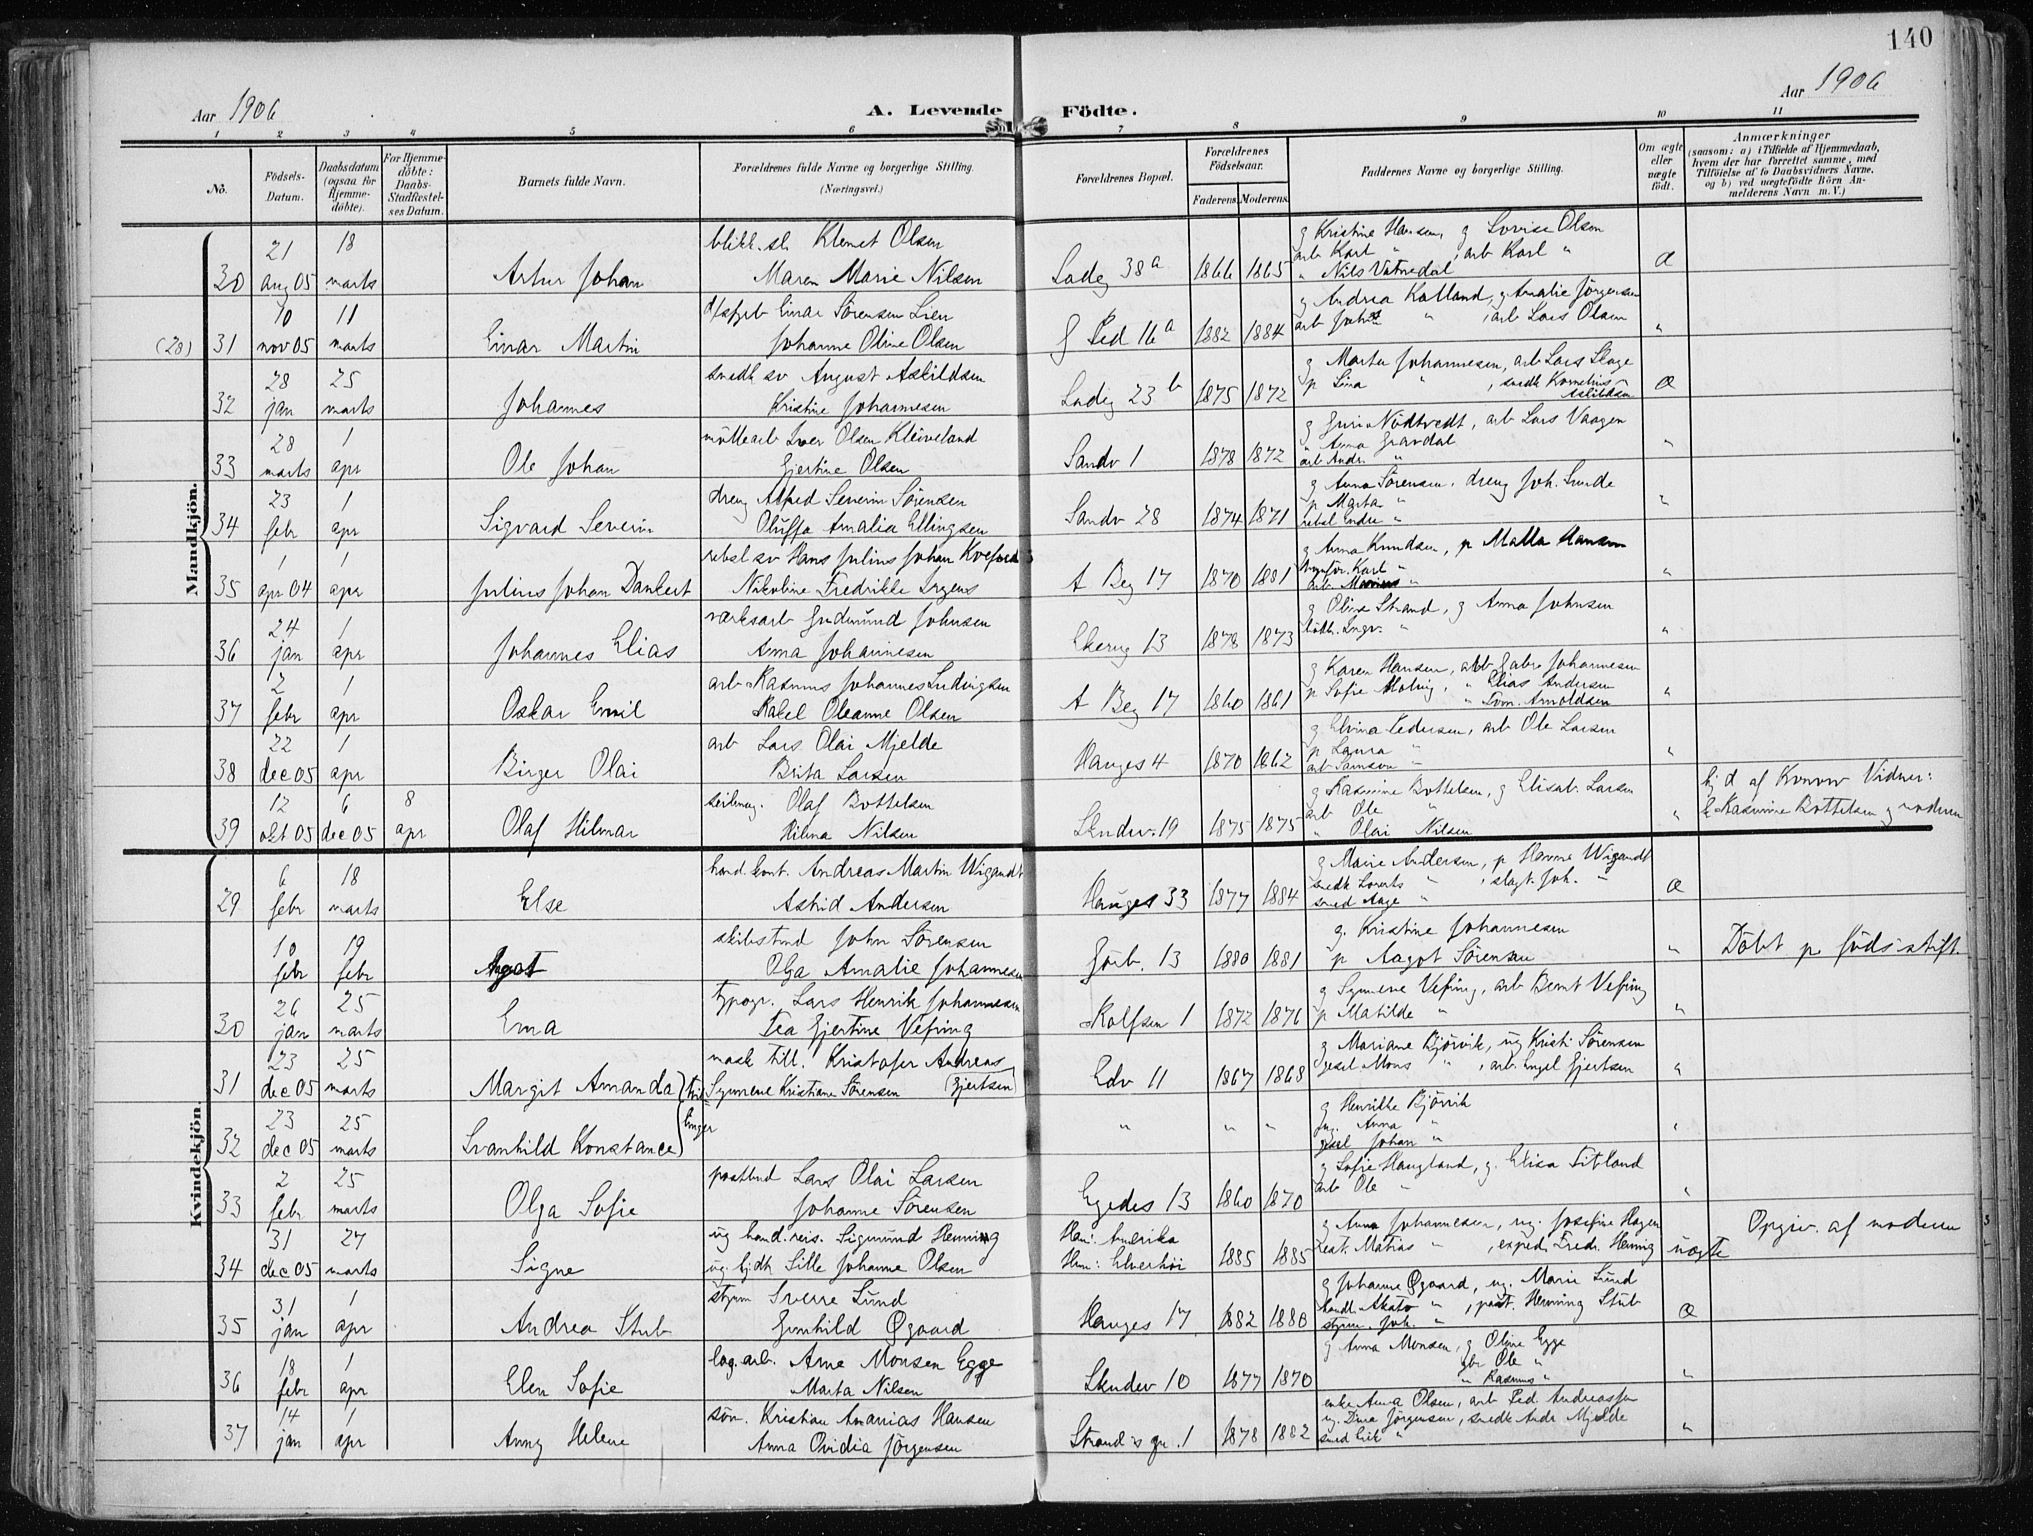 140
Aar 1906
A. Levende Födte.
Aar 1906
1 2 3 4 5 6 7 8 9 10 11
Nô.
Födsels-Datum.
Daabsdatum (ogsaa for Hjemme-döbte).
For Hjemme-döbte: Daabs-Stadfæstel-ses Datum.
Barnets fulde Navn.
Forældrenes fulde Navne og borgerlige Stilling. (Næringsvei.)
Forældrenes Bopæl.
Forældrenes Födselsaar.
Faderens. Moderens.
Faddernes Navne og borgerlige Stilling.
Om ægte eller uægte födt.
Anmærkninger
(saasom: a) i Tilfælde af Hjemmedaab,
hvem der har forrettet samme, med
Tilföielse af to Daabsvidners Navne,
og b) ved uægtefödte Börn An-
melderens Navn m. V.)
Mandkjön.
21 18 Klemet Olsen g Kristine Hansen, g Lovise Olsen
arb Karl " , arb Karl "
30 aug 05 marts Artur Johan Maren Marie Nilsen Ladeg 38a 1866 1865 " Nils Vatnedal Æ
10 11 Einar Sörensen Lien g Andrea Kalland, g Amalie Jörgensen
(28) 31 nov 05 marts Einar Martin Johanne Oline Olsen 16a 1882 1884 arb Lars Olsen "
28 25 snedk sv August Askildsen g Marta Johannesen, arb Lars Skage
32 jan marts Johannes Kristine Johannesen Ladeg 23b 1875 1872 p Lina " , snedk Kornelius Askildsen Æ
28 1 möllearb Iver Olsen Kleiveland g Guri Nödtvedt, arb Lars Vaagen
" Anna Gravdal
33 marts apr Ole Johan Gjertine Olsen Sandv 1 1878 1872 arb Andr. " "
23 1 dreng Alfred Severin Sörensen g Anna Sörensen, dreng Joh. Lunde
p Marta "
34 febr apr Sigvard Severin Oluffa Amalia Ellingsen Sandv 28 1874 1871 "
1 1 rebsl sv Hans Julius Johan g Anna Knudsen, p Malla Hansen
35 apr 04 apr Julius Johan Dankert Nikoline Fredrikke Irgens A Beg 17 1870 1881 "
24 1 værksarb Gudmund Johnsen g Oline Strand, g Anna Johnsen
36 jan apr Johannes Elias Anna Johannesen Ekerug 13 1878 1873 "
2 1 arb Rasmus Johannes Ludvigsen g Karen Hansen, arb Gabr Johannesen
p Sofie " Elias Andersen
37 febr apr Oskar Emil Rakel Oleanne Olsen A Beg 17 1860 1861 " Arnoldsen "
22 1 arb Lars Olai Mjelde g Elvina Pedersen, arb Ole Larsen
p Laura "
38 dec 05 apr Birger Olai Brita Larsen Hauges 4 1870 1862 arb Samson " "
12 6 8 Olaf Bottelsen g Rasmine Bottelsen, g Elisab. Larsen hj d af Konow Vidner:
arb Ole "
39 okt 05 dec 05 apr Olaf Hilmar Hilma Nilsen Skudev. 19 1875 1875 " Olai Nilsen " Rasmine Bottelsen g moderen
Kvindekjön
6 18 Andreas Martin Wigandt g Marie Andersen, p Hanna Wigandt
snedk Laurits " , slagt. Joh. "
29 febr marts Else Astrid Andersen Hauges 33 1877 1884 smed Aage " Æ
10 19 John Sörensen g. Kristine Johannesen
febr febr Aagot Olga Amalie Johannesen 13 1880 1881 p Aagot Sörensen " Döbt p födselsstift.
26 25 typogr. Lars Henrik Johannesen g Synneve Vefring, arb Bernt Vefring
30 jan marts Erna Tea Gjertine Vefring Rolfsen 1 1872 1876 p Matilde " "
23 25 mask till. Kristofer Andreas g Mariane Björvik, ug Kristi Sörensen
31 dec 05 marts Margit Amanda Synneve Kristiane Sörensen (Gjertsen) Edv 11 1867 1868 gesel Mons " , arb Engel Gjertsen "
23 25 g Henrikke Björvik
ug. Anna "
32 dec 05 marts Svanhild Konstance " " " gesel Johan " "
2 25 postbud Lars Olai Larsen g Sofie Haugland, g. Elisa Titland
33 febr marts Olga Sofie Johanne Sörensen Egedes 13 1860 1870 arb Ole " "
31 27 ug hand.reis. Sigmund Henning Han: Amerika g Anna Johannesen, ug. Josefine Hagen Opgiv. af moderen
34 dec 05 marts Signe Lille Johanne Olsen Hun: Elverhöi 1885 1885 Matias " , exped. Fredr. Henning uægte
31 1 styrm Sverre Lund g Johanne Øgaard, ug. Marie Lund
" , post. Henning Stub
35 jan apr Andrea Stub Gunhild Øgaard Hauges 17 1882 1880 styrm. Joh. " Æ
18 1 Arne Monsen Egge g Anna Monsen, g Oline Egge
Ole "
36 febr apr Elen Sofie Marta Nilsen Skudev 10 1877 1870 " Rasmus " "
14 1 Kristian Ananias Hansen enke Anna Olsen, arb Ped. Andreassen
ug. Dina Jörgensen, snedk Andr Mjelde
37 jan apr Anny Helene Anna Ovidia Jörgensen Strand's gr. 1 1878 1882 smed Erik " "